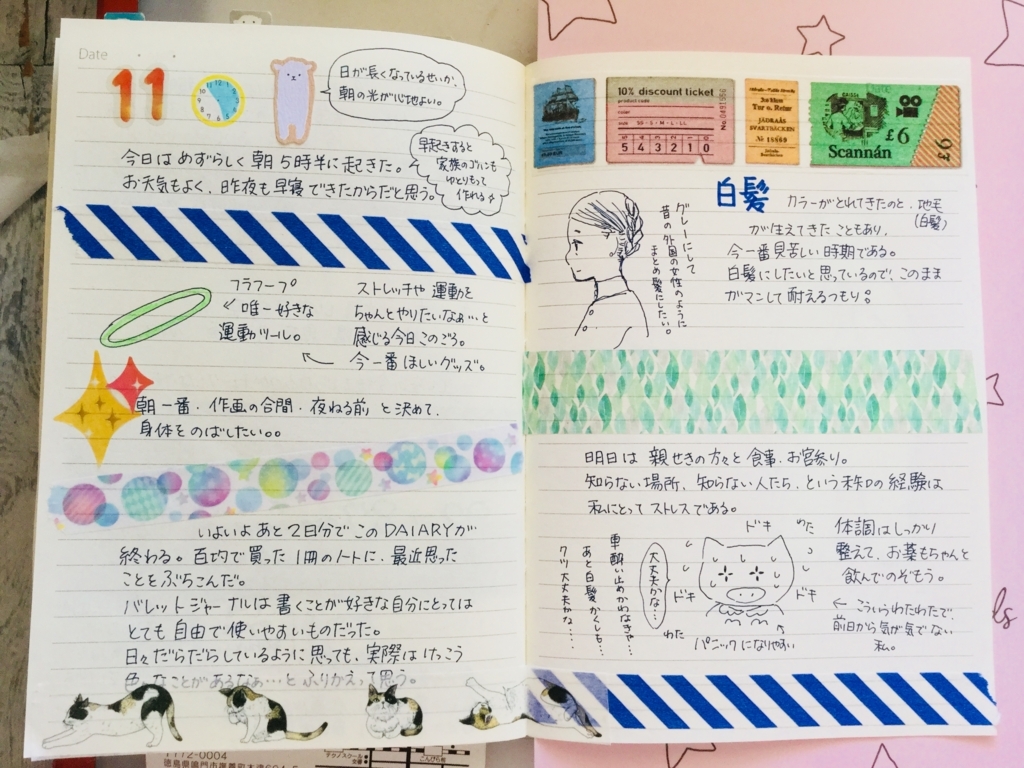 Date
11
日が長くなっているせいか、
朝の光が心地よい。
早起きすると
家族のゴハンも
ゆとりもって
作れる
今日はめずらしく朝5時半に起きた。
お天気もよく、昨夜も早寝できたからだと思う。
フラフープ
← 唯一好きな
運動ツール。
ストレッチや運動を
ちゃんとやりたいなぁ…と
感じる今日このごろ。
今一番ほしいグッズ。
朝一番・作画の合間・夜ねる前 と決めて、
身体をのばしたい。。
いよいよあと2日分でこのDAIARYが
終わる。百均で買った1冊のノートに、最近思った
ことをぶちこんだ。
バレットジャーナルは書くことが好きな自分にとっては
とても自由で使いやすいものだった。
日々だらだらしているように思っても、実際はけっこう
色々なことがあるなぁ…とふりかえって思う。
〒772-0004
10% discount ticket
product code
No.0491956
SS・S・M・L・LL
5 4 3 2 1 0
JÄDRAÅS
SVARTBÄCKEN
£6
Scannán
£6
白髪
カラーがとれてきたのと、地毛
(白髪)
が生えてきたこともあり、
今一番見苦しい時期である。
白髪にしたいと思っているので、このまま
ガマンして耐えるつもり。
グレーにして
昔の外国の女性のように
まとめ髪にしたい。
明日は親せきの方々と食事、お宮参り。
知らない場所、知らない人たち、という未知の経験は
私にとってストレスである。
体調はしっかり
整えて、お薬もちゃんと
飲んでのぞもう。
← こういうわたわたで、
前日から気が気でない
私。
ドキ
わた
大丈夫かな…
車酔い止めかわなきゃ…
あと白髪かくしも…
クツ大丈夫かな…
ドキ
ドキ
わた
パニックになりやすい